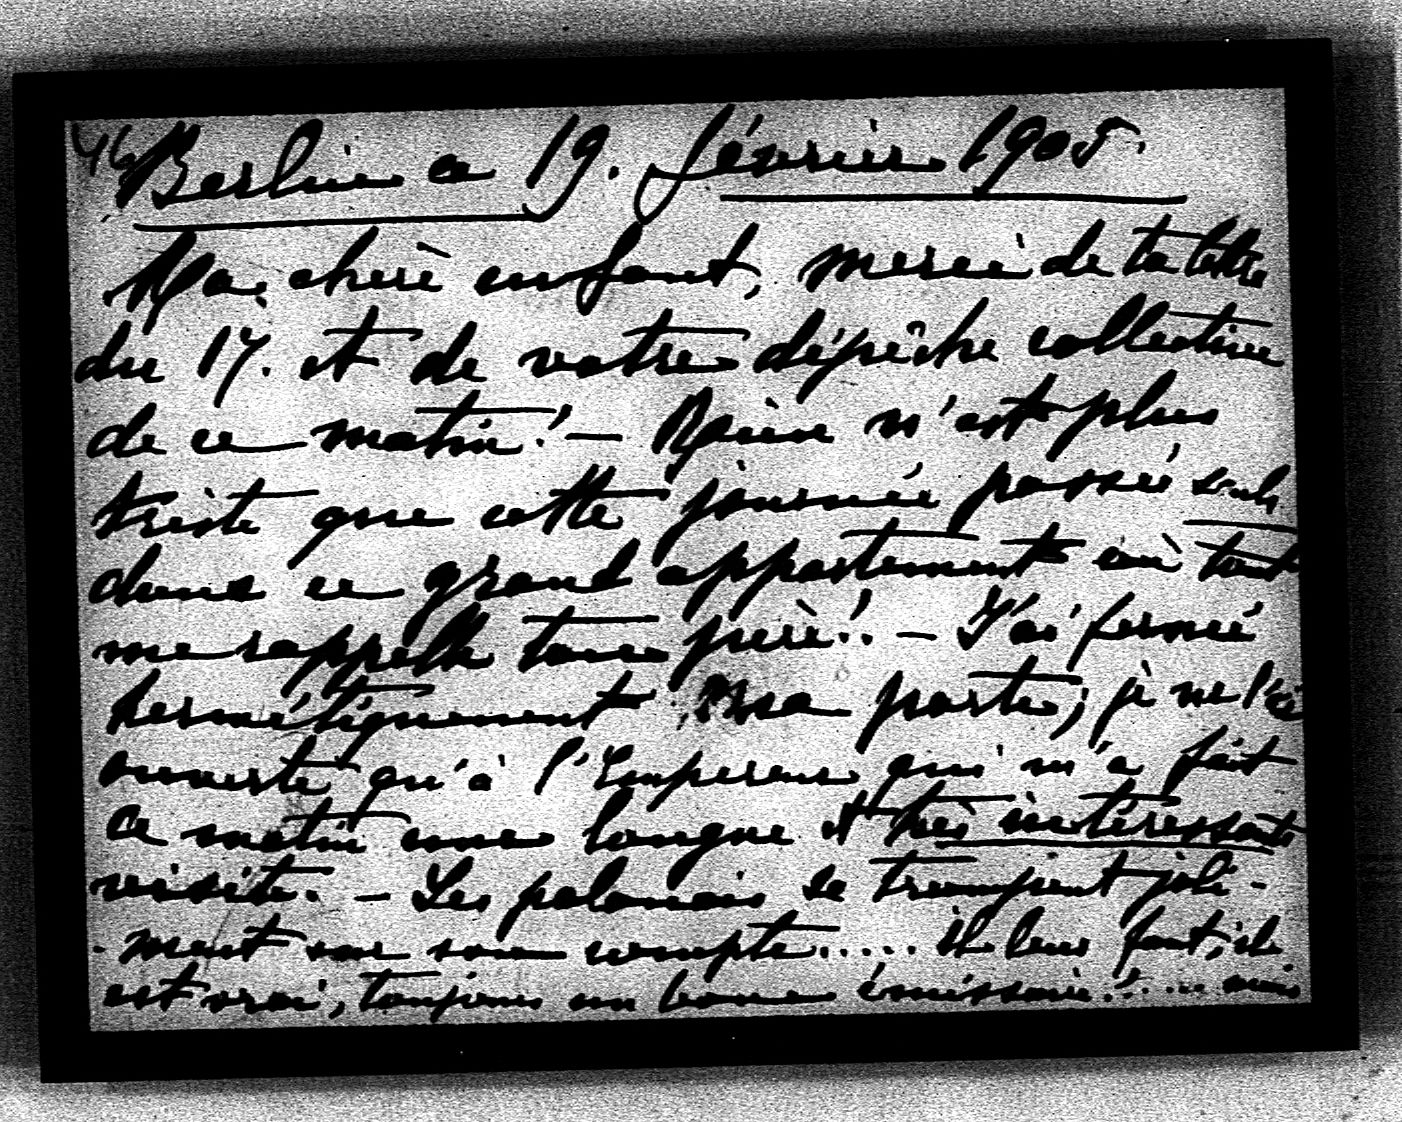 44 Berlin ce 19. février 1905.
Ma chère enfant, merci de ta lettre
du 17. et de votre dépêche collective
de ce matin! — Rien n'est plus
triste que cette journée passée seule
dans ce grand appartement où tout
me rappelle ton père!. — J'ai fermé
hermétiquement ma porte; je ne l'ai
ouverte qu'à l'Empereur qui m'a fait
ce matin une longue et très intéressante
visite. — Les polonais se trompent joli-
-ment sur son compte..... Il leur faut, il
est vrai, toujours un bouc émissaire!.... mais